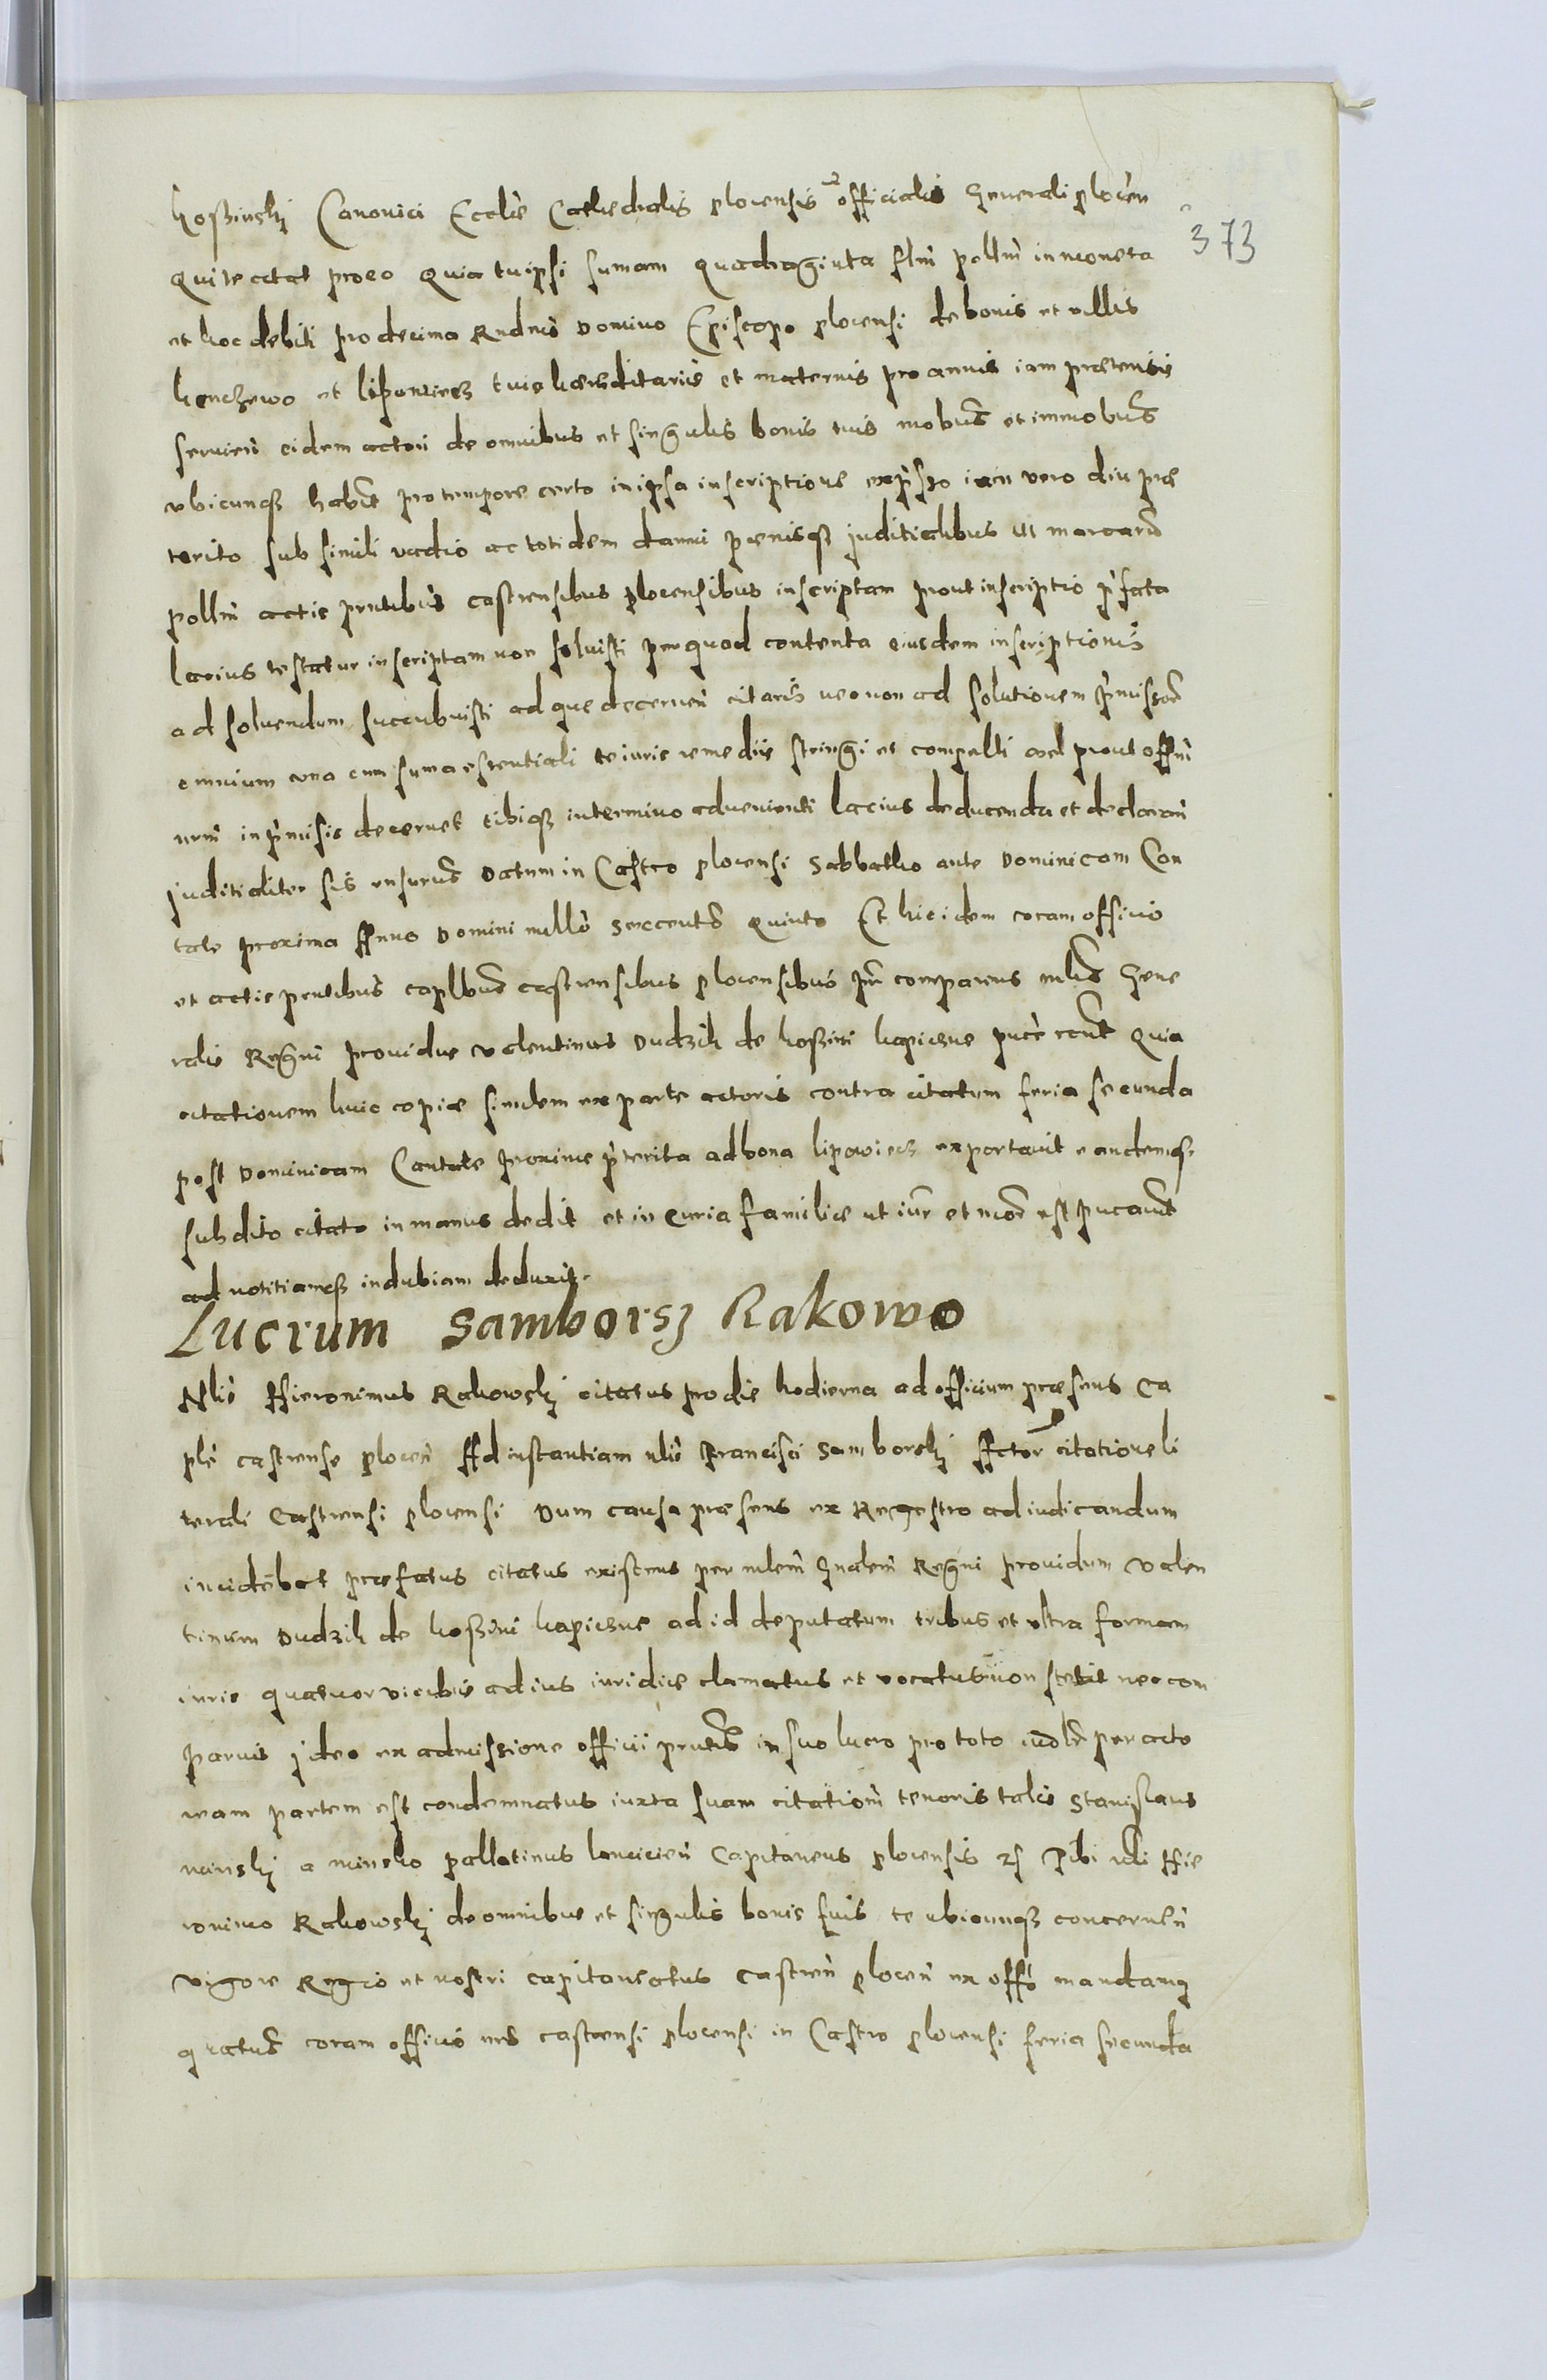 koßinskj Canonici Eccliæ Cathedralis plocensis et officialis Generali plocen
373
qui te citat pro eo quia tu ipsi sumam quadraginta flni pollni in moneta
et hoc debiti pro decima Rndno Domino Episcopo plocensi de bonis et villis
et lipowiecz tuis hæreditariis et maternis pro annis iam prætensis
servien eidem actori de omnibus et singulis bonis tuis mobus et immobus
ubicunq habts pro tempore certo in ipsa inscriptione expsso iam vero diu præ
terito sub simili vadio ac totidem damni pœnisq juditialibus ut marcaru
pollni actis pntibus castrensibus plocensibus inscriptam prout inscriptio pfata
lacius testatur inscriptam non solvisti per quod contenta eiusdem inscriptionis
ad solvendum succubuisti ad que decernen citaris necnon ad solutionem pmissor
omnium una cum suma essentiali te iuris remediis stringi et compelli ad prout offm
nrm in pmisis decernet tibiq in termino advenienti lacius deducenda et declaran
juditialiter sis rnsurus Datum in Castro plocensi Sabbatho ante Dominicam Can
tate proxima Anno Domini millo sexcento quinto Et hic idem coram officio
et actis pntibus caplbus castrensibus plocensibus psr comparens mlis Gene
ralis Regni providus valentinus Dudzik de koßini kapicsne puce recnt quia
citationem huic copiæ similem ex parte actoris contra citatum feria secunda
post Dominicam Cantate proxime pterita ad bona lipowiecz exportavit eandemq
subdito citato in manus dedit et in curia familiæ ut iur et mor est pucavit
ad notitiamq indubiam deduxit.
Lucrum Samborsj Rakowo
Nlis Hieronimus Rakowskj citatus pro die hodierna ad officium præsens Ca
ple castrense plocen Ad instantiam nlis Francisci Samborskj Actor citatione li
terali Castrensi plocensi Dum causa præsens ex Regestro ad iudicandum
incidebat præfatus citatus existens per mlem Gnalem Regni providum Valen
tinum Dudzik de koßini kapicsne ad id deputatum tribus et ultra formam
iuris quatuor vicibus ad ius iuridice clamatus et vocatus non stetit neo com
paruit jdeo ex admissione officii pntis in suo lucro pro toto per acto
ream partem est condemnatus iuxta suam citationi tenoris talis Stanislaus
minskj a minsko pallatinus lancicien Capitaneus plocensis Tibi nli Hie
ronimo Rakowskj de omnibus et singulis bonis tuis te ubicunq concernen
vigore Regio et nostri capitaneatus castren plocen ex offo mandamq
quatus coram officio nro castrensi plocensi in Castro plocensi feria secunda